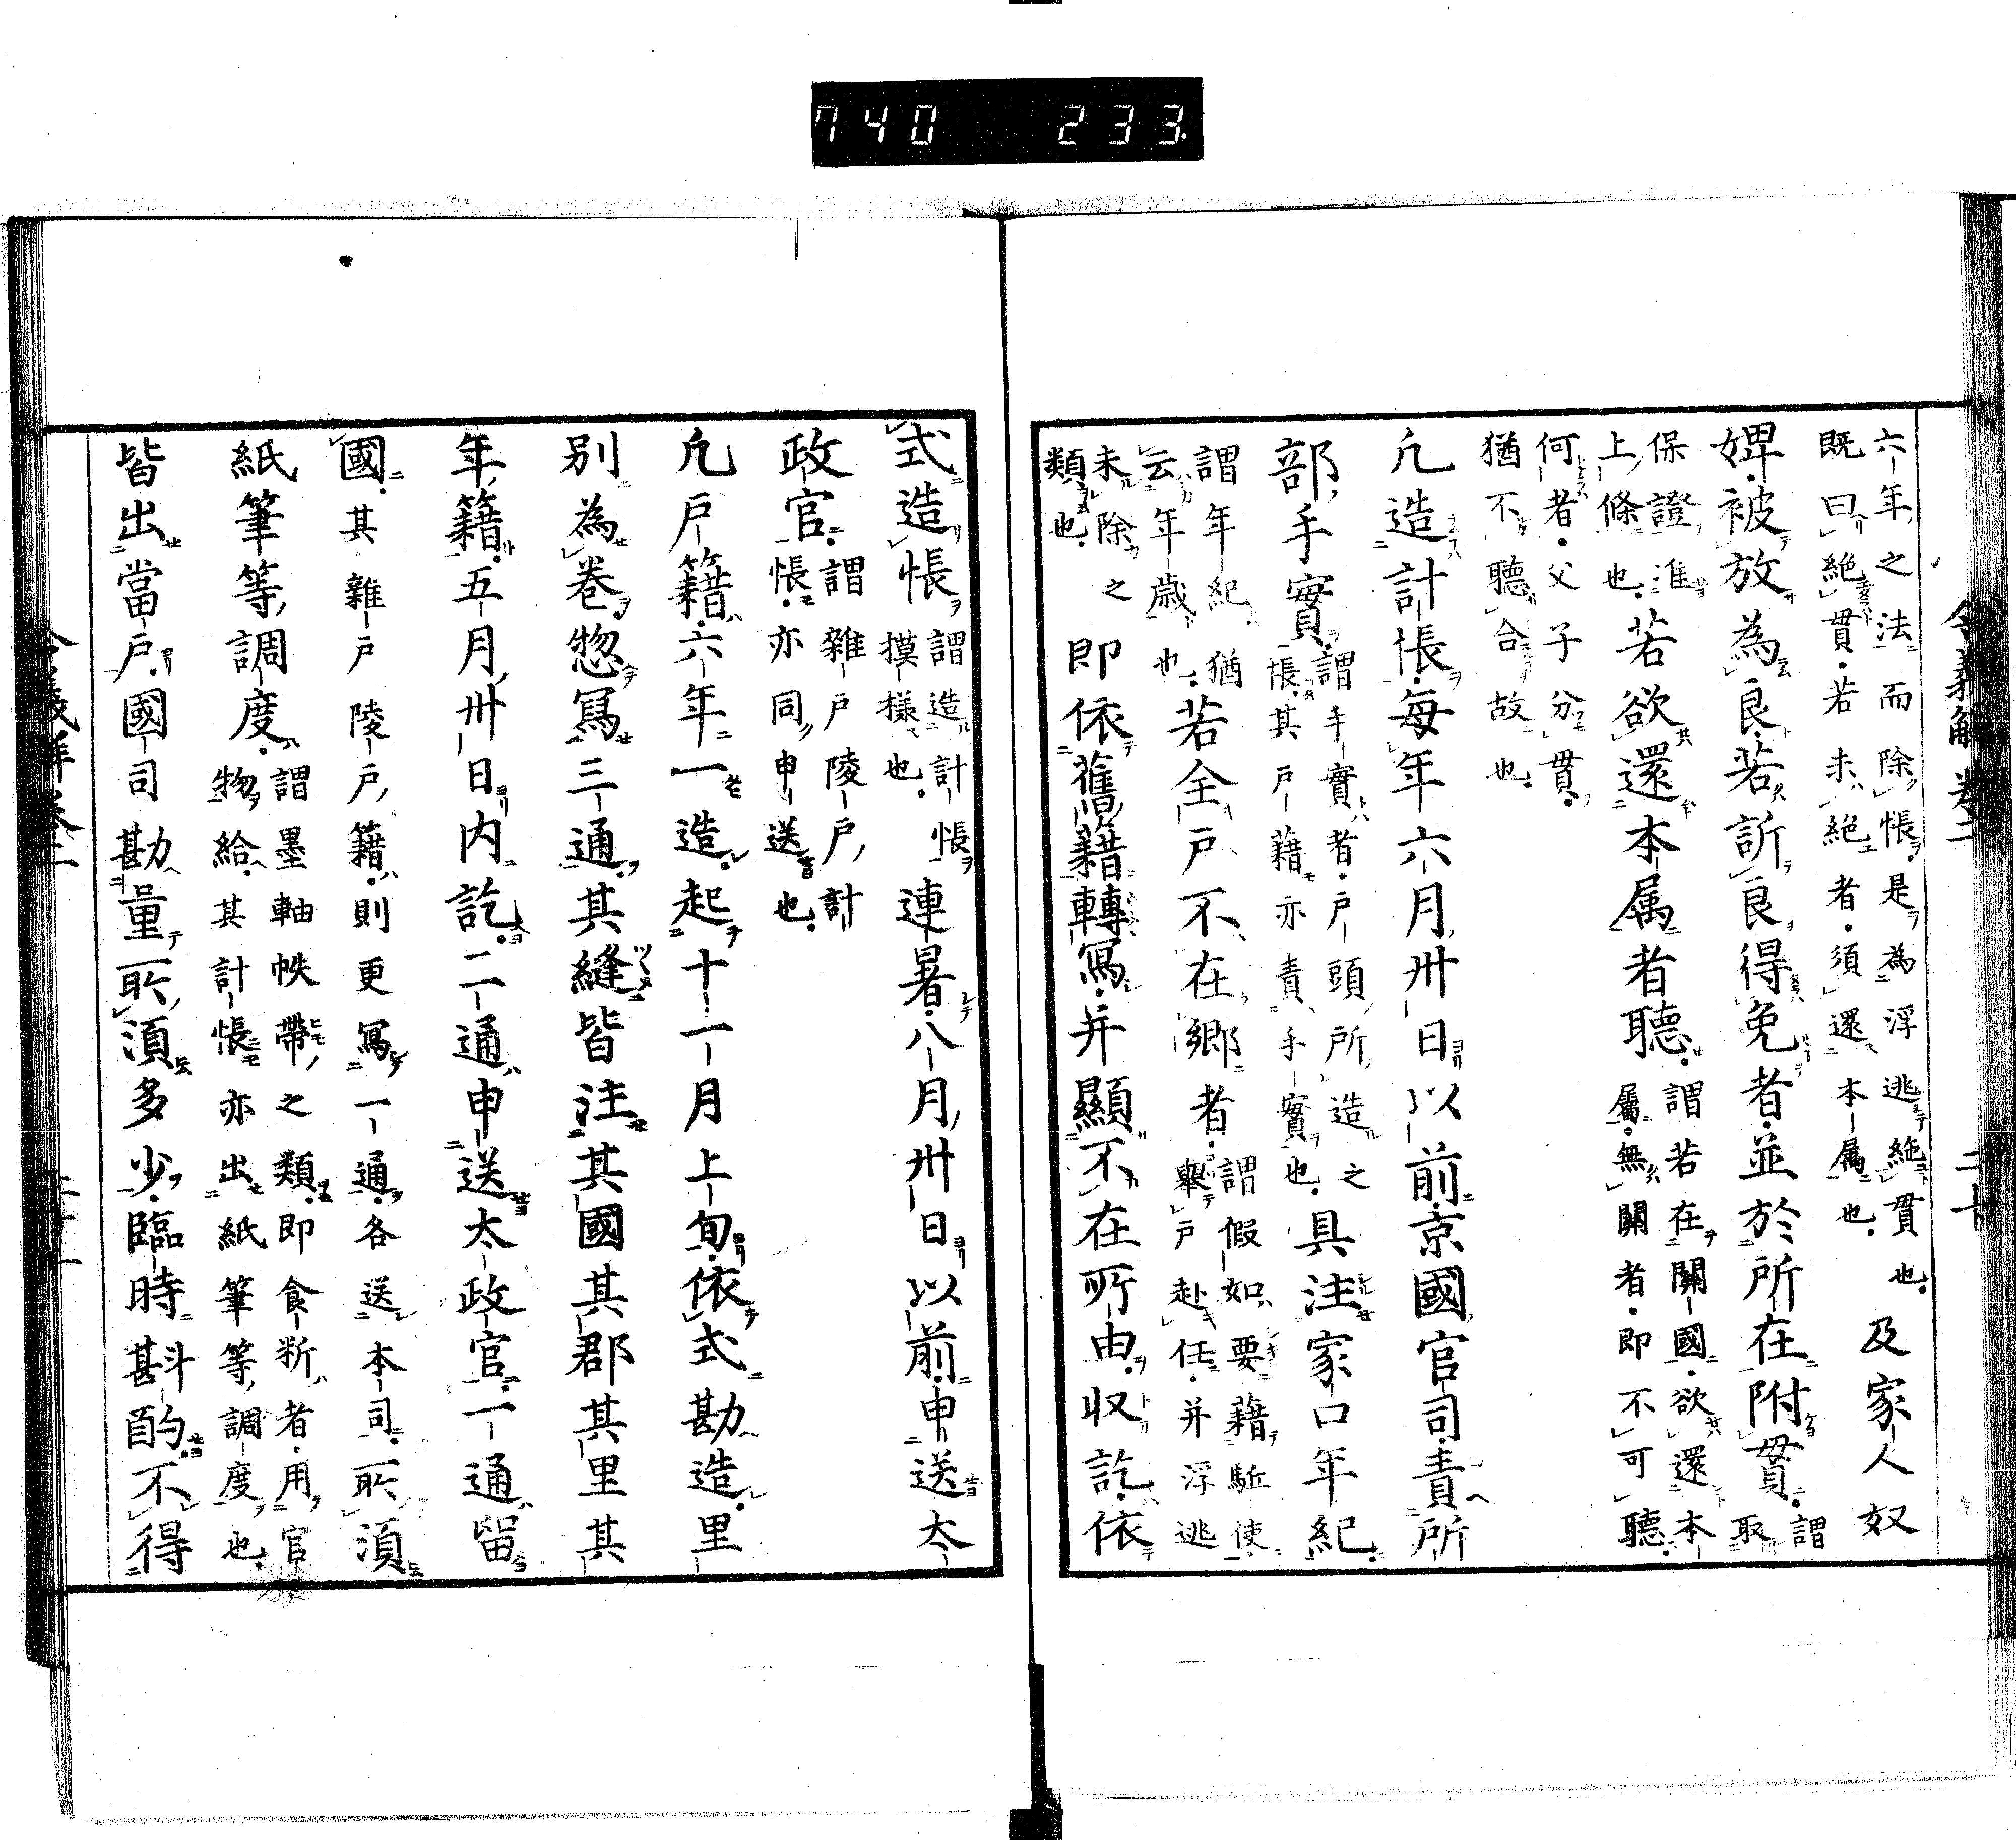 740 233
令義解 巻二 二十
六年之法而除帳是為浮逃絶貫也
既曰絶貫若未絶者須還本属也
及家人奴
婢被放為良若訴良得免者並於所在附貫謂
取
保證准
上條也
若欲還本属者聴
謂若在關國欲還本
属無關者即不可聴
何者父子分貫
猶不聴合故也
凢造計帳毎年六月卅日以前京國官司責所
部手實
謂手實者戸頭所造之
帳其戸藉亦責手實也
具注家口年紀
謂年紀猶
云年歳也
若全戸不在郷者
謂假如要藉駈使
擧戸赴任并浮逃
未除之
類也
即依舊籍轉冩并顯不在所由収訖依
式造帳
謂造計帳
摸様也
連署八月卅日以前申送太
政官
謂雜戸陵戸計
帳亦同申送也
凢戸籍六年一造起十一月上旬依式勘造里
別為巻惣冩三通其縫皆注其國其郡其里其
年籍五月卅日内訖二通申送太政官一通留
國其雜戸陵戸籍則更冩一通各送本司所須
紙筆等調度
謂墨軸帙帶之類即食斷者用官
物給其計帳亦出紙筆等調度也
皆出當戸國司勘量所須多少臨時斟酌不得